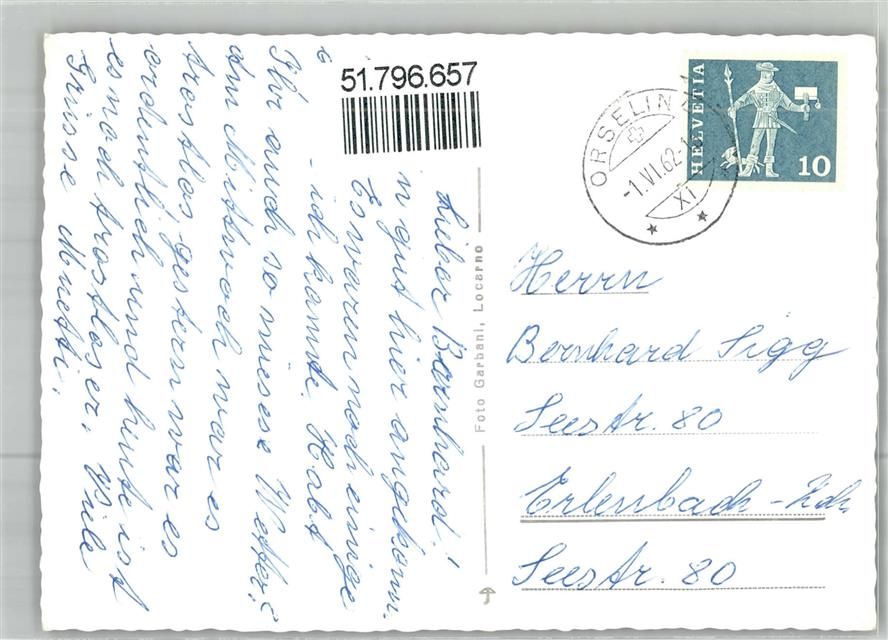 51.796.657
Lieber Bernhard!
n gut hier angekomm.
Es waren noch einige
- ich kannte. Habt
Ihr auch so mieses Wetter?
Am Mittwoch war es
trostlos, gestern war es
ordentlich und heute ist
es noch trostloser. Viele
Grüsse Muetti.
Foto Garbani, Locarno
HELVETIA
10
ORSELINA
-1.VI.62-1
XI
Herrn
Bernhard Sigg
Seestr. 80
Erlenbach - Zch.
Seestr. 80